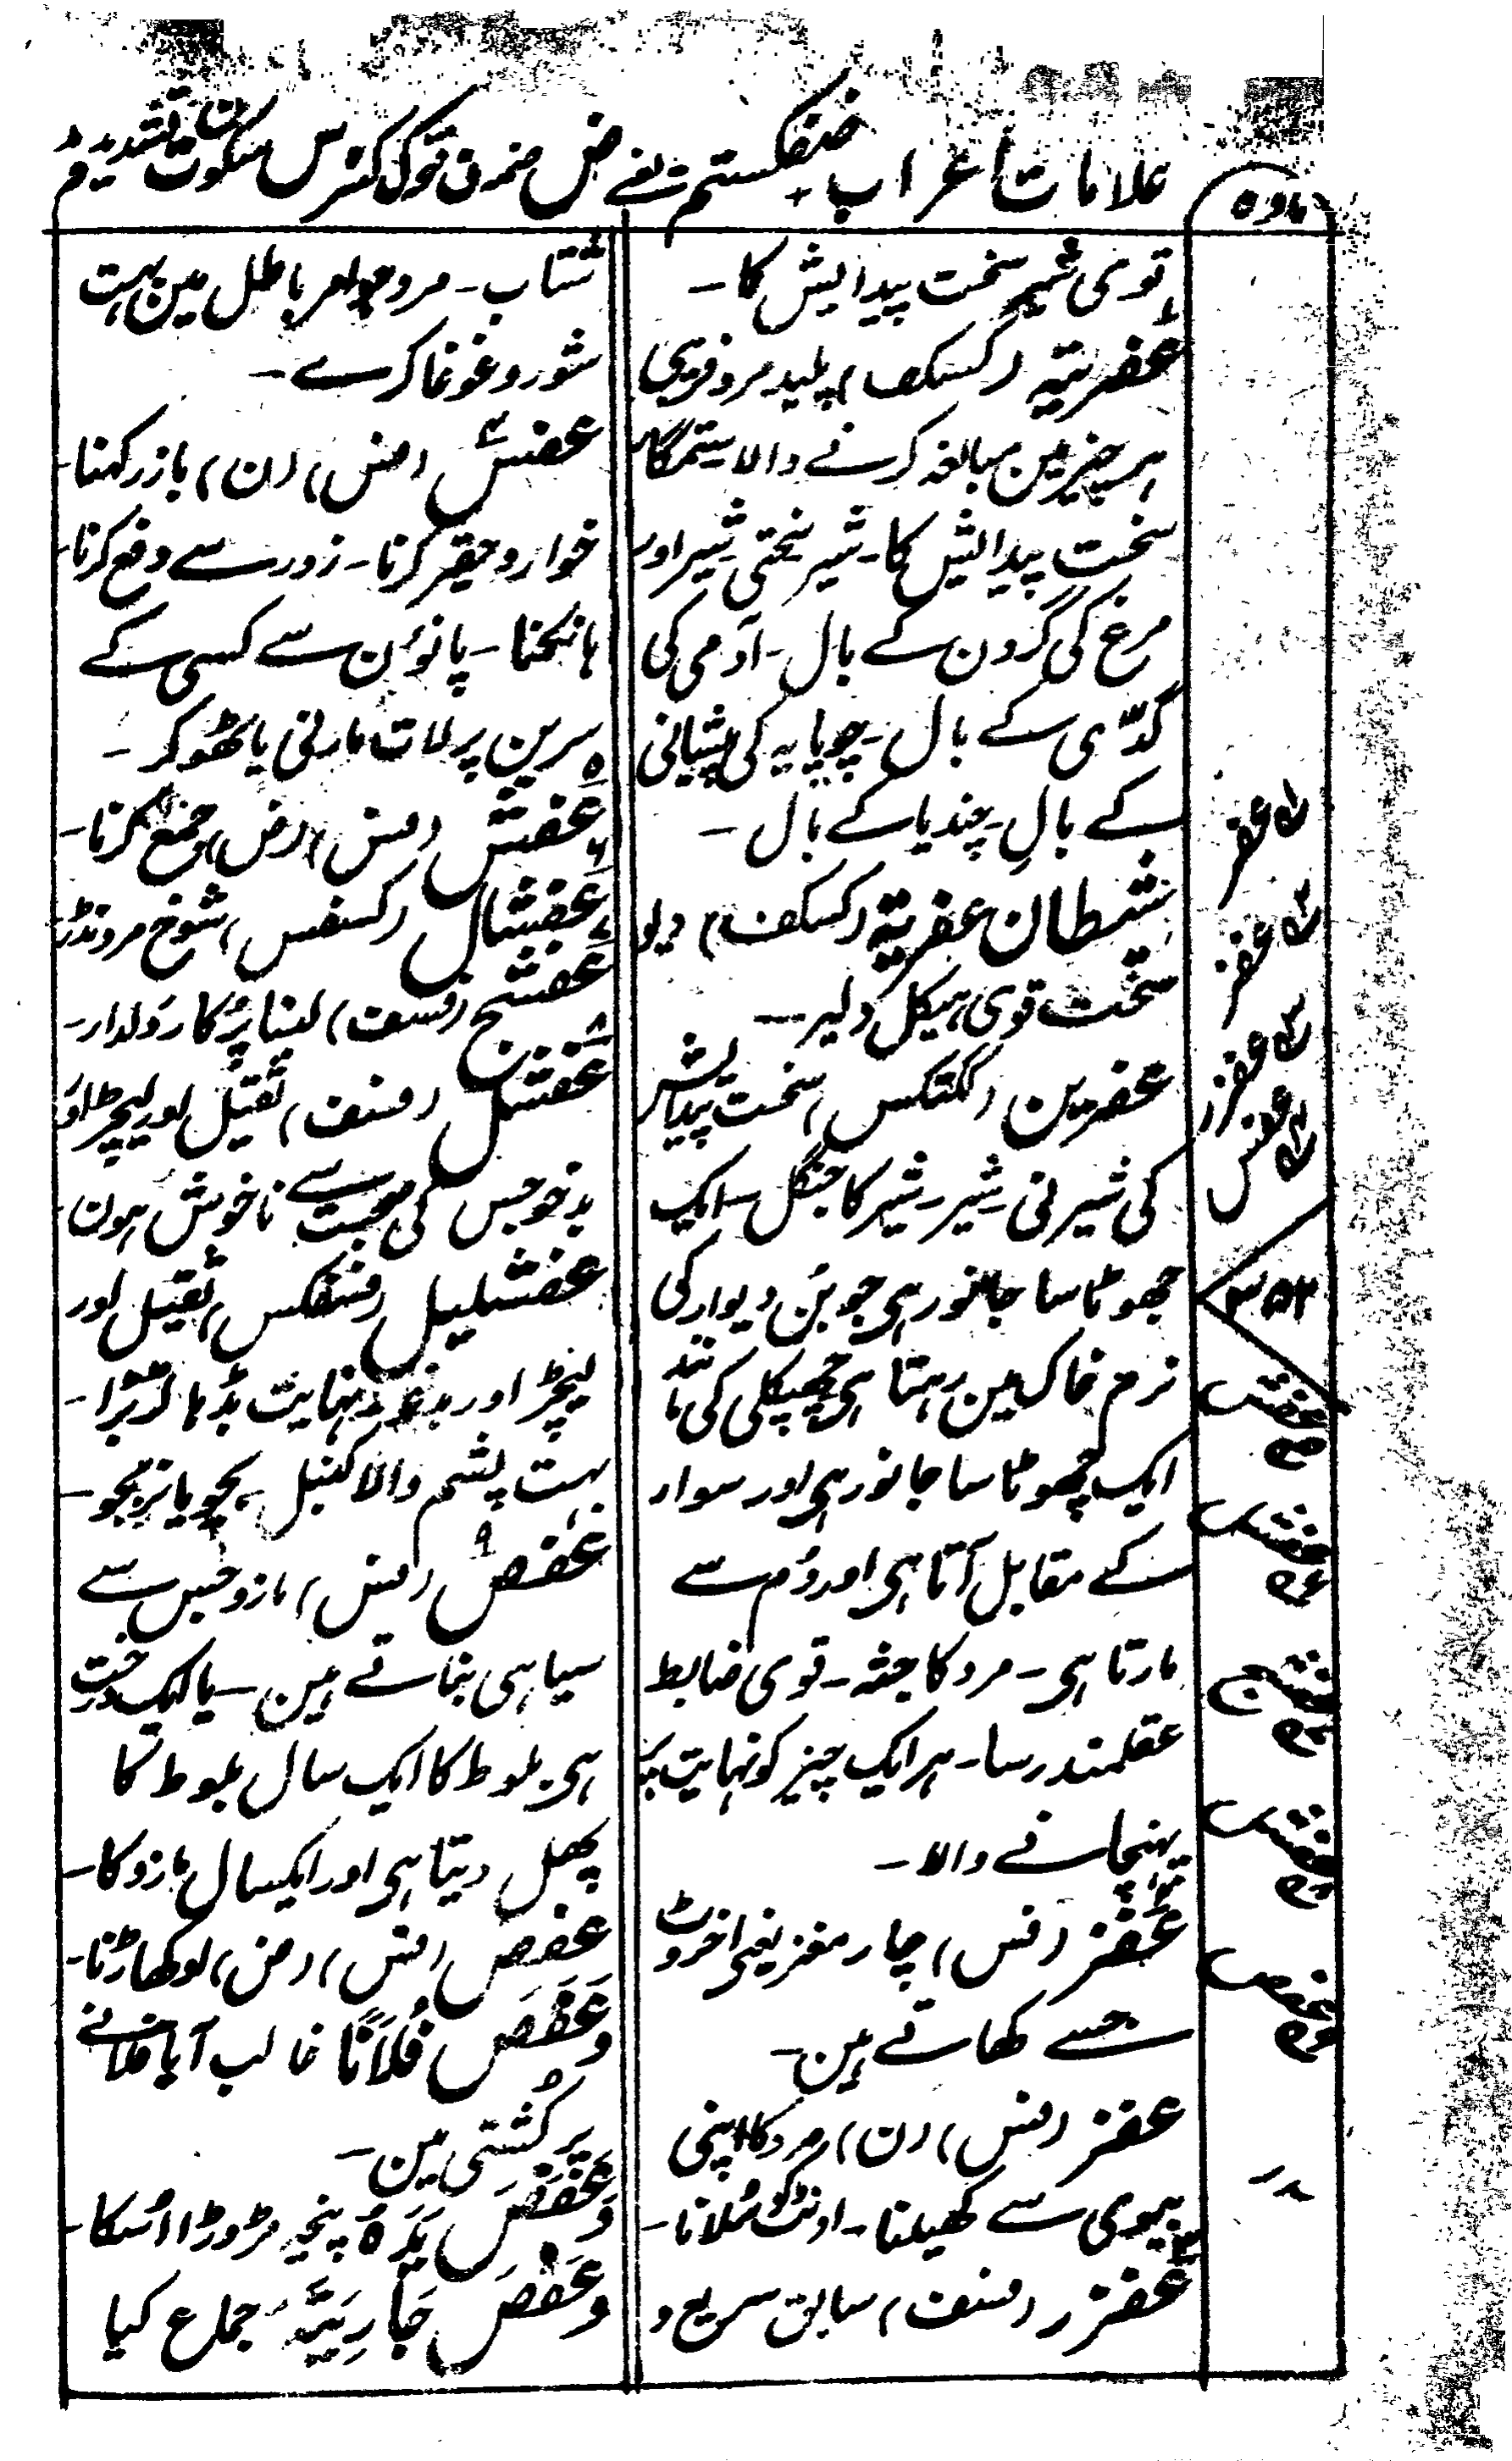 علامات اعراب ض ضمہ ق ک کسرہ س سکون ت تشدید
مادہ
قوی شیر سخت پیدایش کا۔
عفریۃ (کسکف) پلید مرد فریبی
ہر چیز مین مبالغہ کرنے والا ستمگار
سخت پیدایش کا۔ شیر۔ سختی شیر اور
مرغ کی گردن کے بال۔ آدمی کی
گدّی کے بال۔ چوپایہ کی پیشانی
کے بال۔ چندیا کے بال۔
شیطان عفریۃ (کسکف) دیو
سخت قوی ہیکل دلیر۔
عفرین (ککتکس) سخت پیدایش
کی شیرنی۔ شیر۔ شیر کا جنگل۔ ایک
چھوٹا سا جانور ہی جو بُن دیوار کی
نرم خاک مین رہتا ہی چھپکلی کی مانند
ایک چھوٹا سا جانور ہی اور سوار
کے مقابل آتا ہی اور دُم سے
مارتا ہی۔ مرد کا جثہ۔ قوی ضابط
عقلمند رسا۔ ہر ایک چیز کو نہایت پر
پہنچانے والا۔
عَفْز (فس) چار مغز یعنی اخروٹ
جسے کھاتے ہین۔
عفز (فس) (ن) مرد کا اپنی
بیوی سے کھیلنا۔ اونٹ کو سُلانا۔
عفزر (فسف) سابق سریع و
شتاب۔ مرد جو امر باطل مین بہت
شور و غوغا کرے۔
عفس (فس) (ن) باز رکہنا۔
خوار و حقیر کرنا۔ زور سے دفع کرنا۔
ہانکنا۔ پانوٴن سے کسی کے
سرین پر لات مارنی یا ٹھوکر۔
عفش (فس) (ض) جمع کرنا۔
عفشال (کسفس) شوخ مرد نڈر
عفشج (فسف) لنبا پُرکار دَلدار۔
عفشل (فسف) ثقیل اور لیچڑ اور
بدخو جس کی صحبت سے ناخوش ہون
عفشلیل (فسفکس) ثقیل اور
لیچڑ اور بدخو۔ نہایت بڈہا بڑا۔
بہت پشم والا کنبل۔ بجو یا نر بجو۔
عفص (فس) مازو جس سے
سیاہی بناتے ہین۔ یا ایک درخت
ہی بلوط کا ایک سال بلوط کا
پھل دیتا ہی اور ایکسال مازو کا۔
عفص (فس) (ض) اوکھاڑنا۔
وَعَفَصَ فُلَانًا غالب آیا فلانے
پر کُشتی مین۔
وَعَفَصَ یَدَہُ پنجہ مڑوڑا اُسکا۔
وَعَفَصَ جَارِیَتَہٗ جماع کیا
عفر
عفز
عفزر
عفس
عفش
عفشل
عفشج
عفشل
عفص